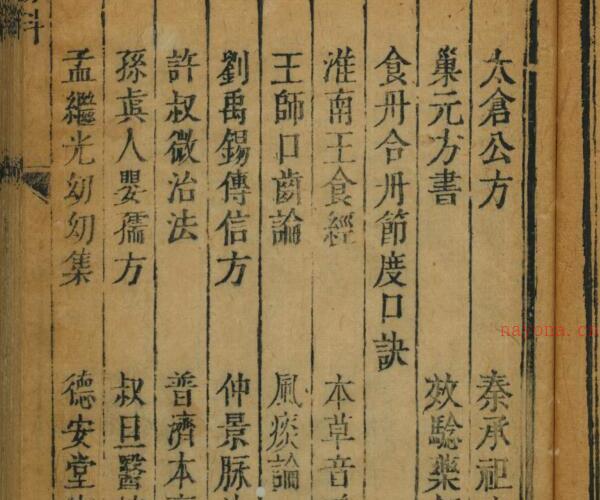 太倉公方 秦承祖
巢元方書 效驗藥
食丹合丹節度口訣
淮南王食經 本草音
王師口齒論 風痰論
劉禹錫傳信方 仲景脉
許叔微治法 普濟本
孫真人嬰孺方 叔旦醫
孟繼光幼幼集 德安堂
nayona.cn